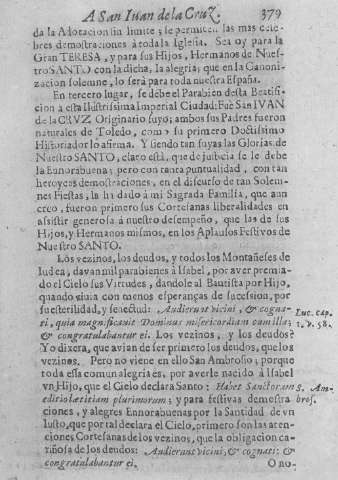 A San Iuan de la Cruz. 379
da la Adoracion sin limite; se permiten las mas cele-
bres demostraciones à toda la Iglesia. Sea oy para la
Gran TERESA, y para sus Hijos, Hermanos de Nues-
tro SANTO con la dicha, la alegria; que en la Canoni-
zacion solemne, lo serà para toda nuestra España.
En tercero lugar, se debe el Parabien desta Beatifi-
cion à esta Ilustrissima Imperial Ciudad: Fuè San IVAN
de la CRVZ Originario suyo; ambos sus Padres fueron
naturales de Toledo, como su primero Doctissimo
Historiador lo afirma. Y siendo tan suyas las Glorias de
Nuestro SANTO, claro està, que de justicia se le debe
la Enorabuena; pero con tanta puntualidad, con tan
heroycas demostraciones, en el discurso de tan Solem-
nes Fiestas, la ha dado à mi Sagrada Familia, que aun
creo, fueron primero sus Cortesanas liberalidades en
assistir generosa à nuestro desempeño, que las de sus
Hijos, y Hermanos mismos, en los Aplausos Festivos de
Nuestro SANTO.
Los vezinos, los deudos, y todos los Montañeses de
Iudea, davan mil parabienes à Isabel, por aver premia-
do el Cielo sus Virtudes, dandole al Bautista por Hijo,
quando vivia con menos esperanças de sucesion, por
su esterilidad, y senectud: Audierunt vicini, & cogna-
ti eius, quia magnificavit Dominus misericordiam cum illa;
& congratulabantur ei. Los vezinos, y los deudos?
Luc. cap.
1. v. 58.
Yo dixera, que avian de ser primero los deudos, que los
vezinos. Pero no viene en ello San Ambrosio; porque
toda essa comun alegria es, por averle nacido à Isabel
vn Hijo, que el Cielo declara Santo: Habet Sanctorum
editio lætitiam plurimorum; y para festivas demostra
ciones, y alegres Enorabuenas por la Santidad de vn
S. Am-
bros.
Iusto, que por tal declara el Cielo, primero son las aten-
ciones Cortesanas de los vezinos, que la obligacion ca-
riñosa de los deudos: Audierunt vicini, & cognati: &
congratulabantur ei.
O no-